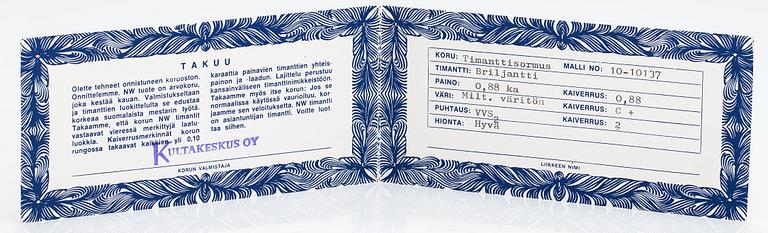 TAKUU
Olette tehneet onnistuneen koruoston.
Onnittelemme. NW tuote on arvokoru,
joka kestää kauan. Valmistukseltaan
ja timanttien luokittelulta se edustaa
korkeaa suomalaista mestarin työtä.
Takaamme, että korun NW timantit
vastaavat vieressä merkittyjä laatu-
luokkia. Kaiverrusmerkinnät korun
rungossa takaavat kaikkien yli 0,10
karaattia painavien timanttien yhteis-
painon ja -laadun. Lajittelu perustuu
kansainväliseen timanttinimikkeistöön.
Takaamme myös itse korun: Jos se
normaalissa käytössä vaurioituu, kor-
jaamme sen veloituksetta. NW timantti
on asiantuntijan timantti. Voitte luot-
taa siihen.
KULTAKESKUS OY
KORUN VALMISTAJA
KORU: Timanttisormus MALLI NO: 10-10137
TIMANTTI: Briljantti
PAINO: 0,88 ka KAIVERRUS: 0,88
VÄRI: Milt. väritön KAIVERRUS: C +
PUHTAUS: VVS2 KAIVERRUS: 2
HIONTA: Hyvä
LIIKKEEN NIMI